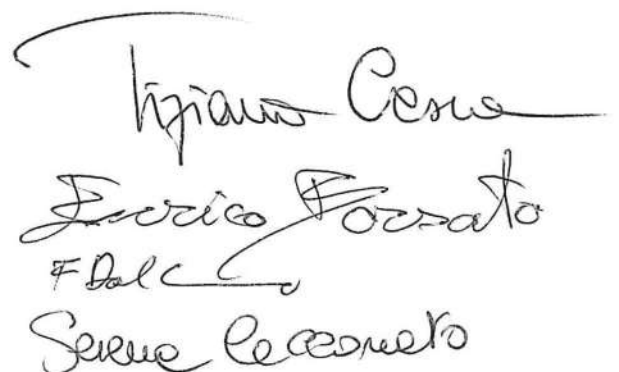 Tiziano Cesca
Enrico Forzato
F Dal C
Serena Cecconato